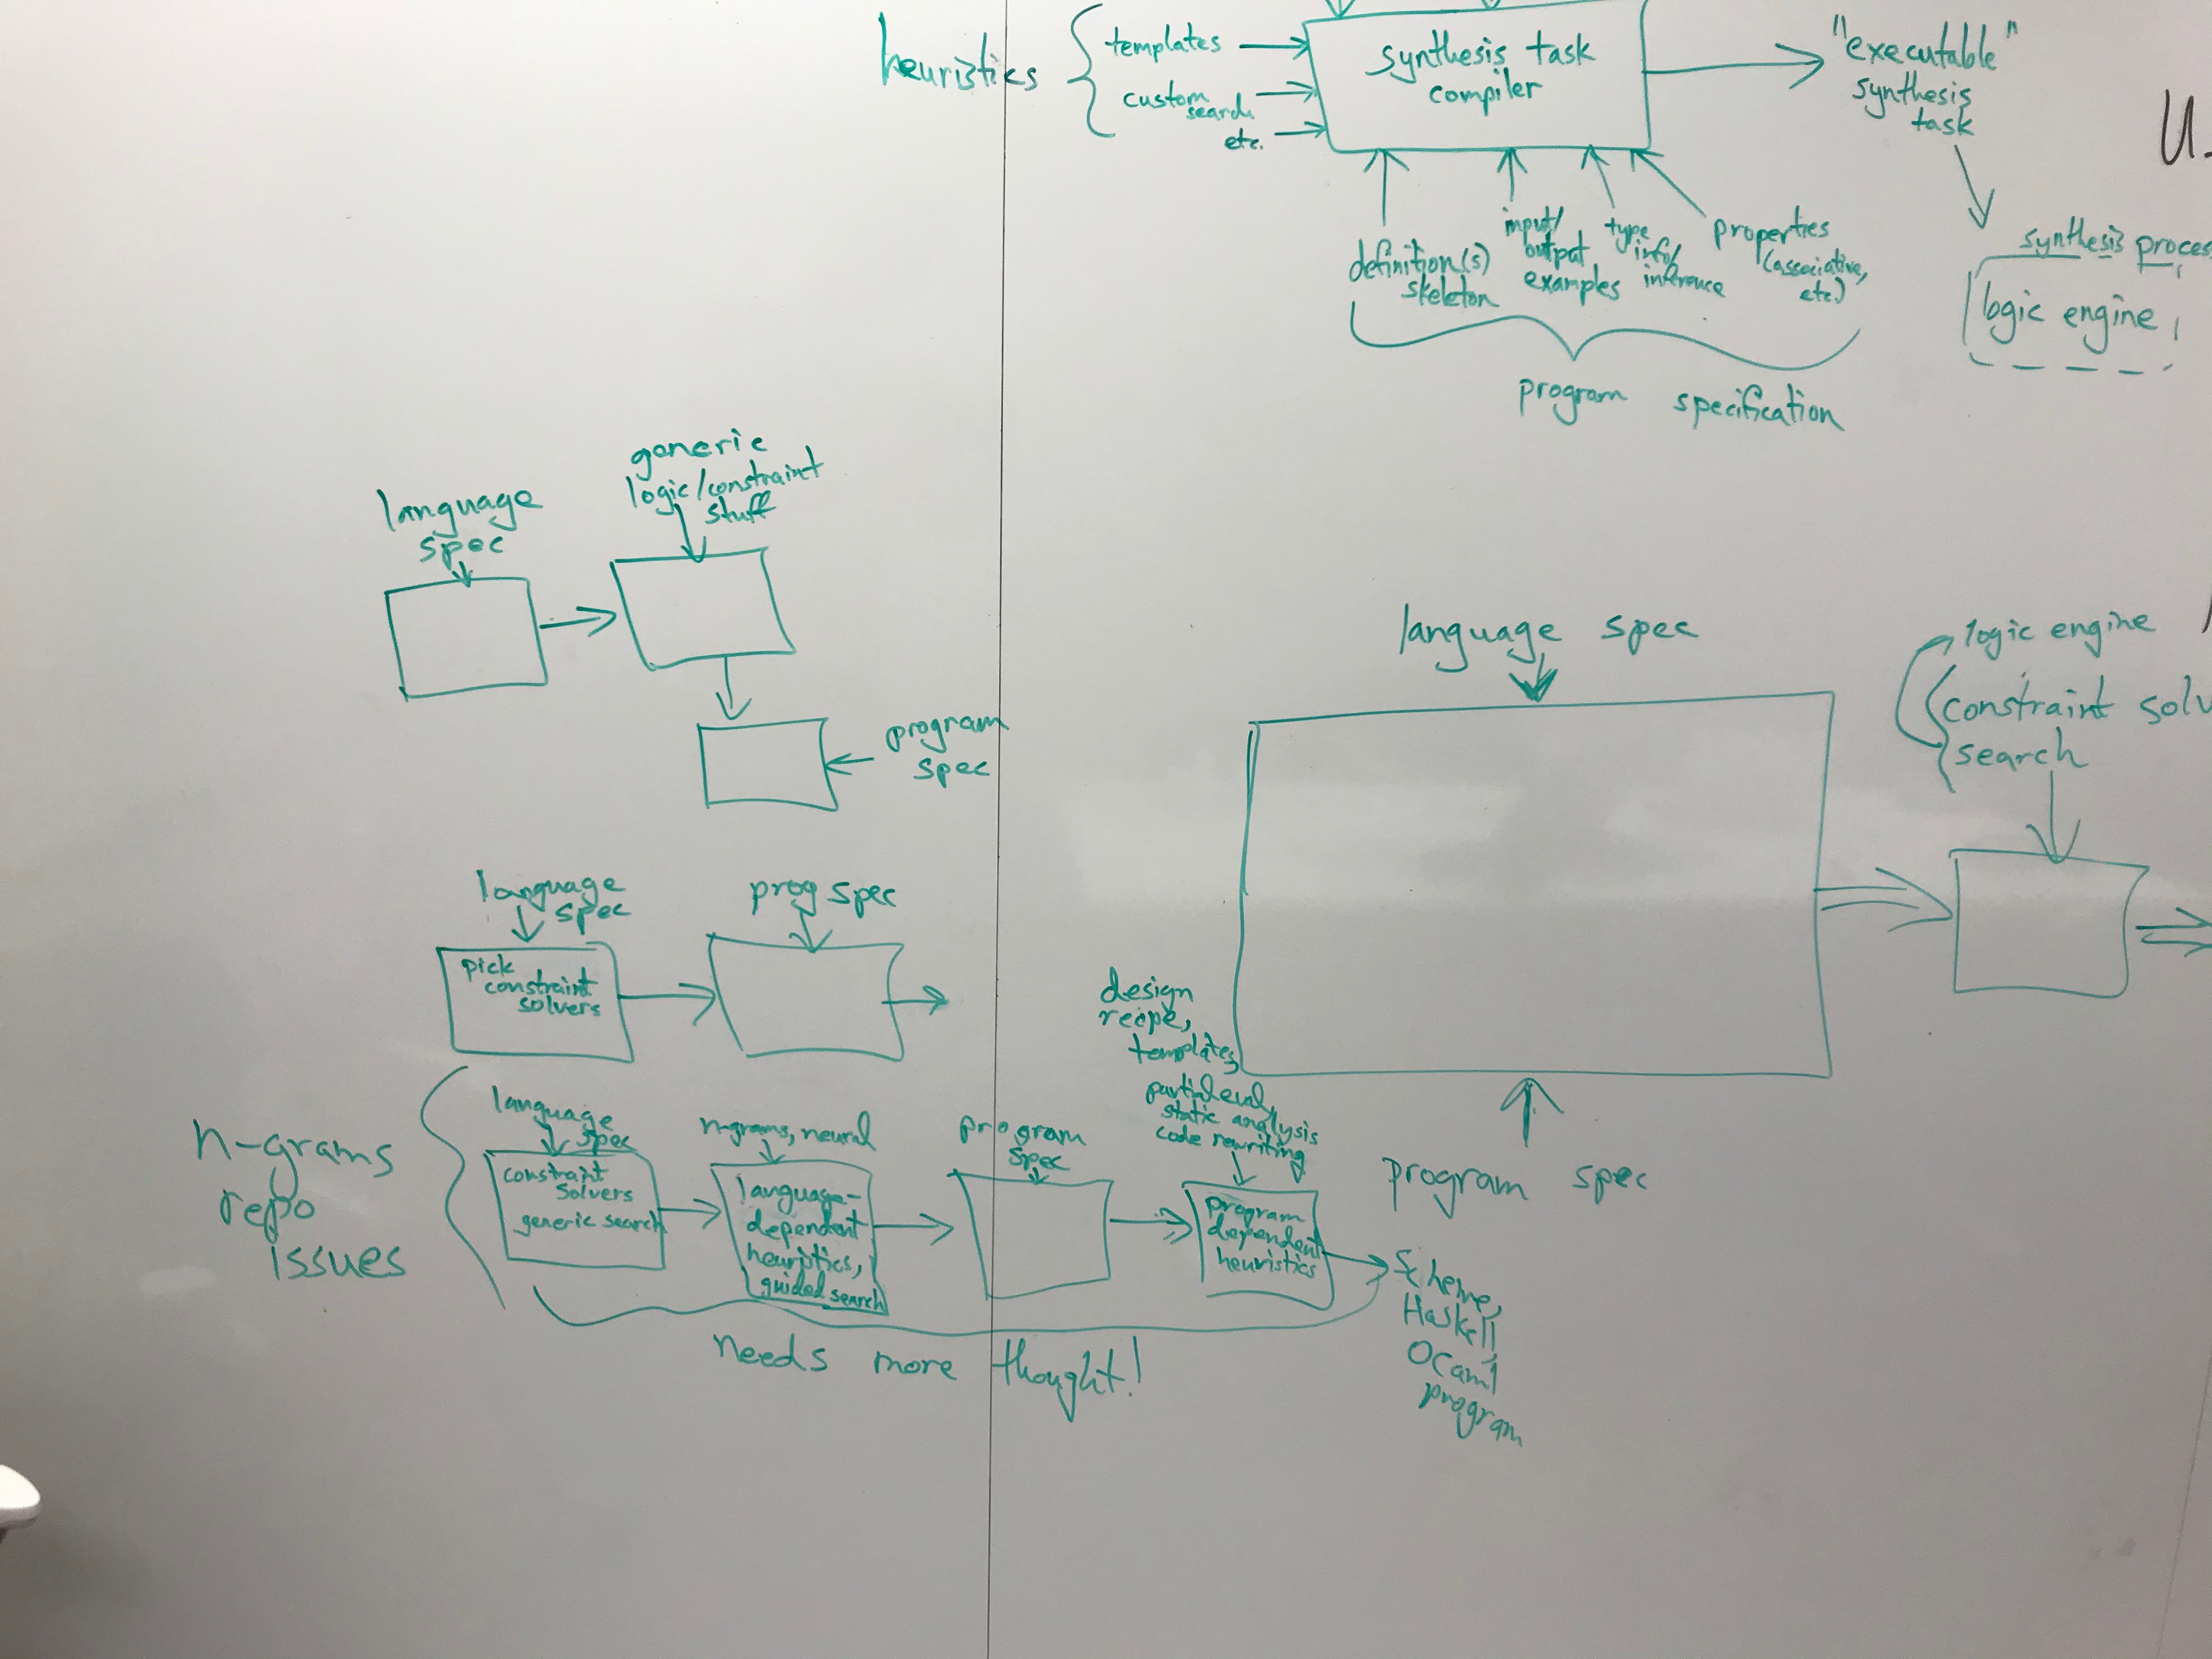 heuristics
templates
custom
search
etc.
synthesis task
compiler
"executable"
synthesis
task
U.
definition(s)
skeleton
input/
output
examples
type
info/
inference
properties
(associative,
etc.)
program specification
synthesis proces
logic engine
generic
logic/constraint
stuff
language
spec
program
spec
language spec
logic engine
constraint solv
search
program spec
language
spec
prog spec
pick
constraint
solvers
n-grams
repo
issues
language
spec
constraint
solvers
generic search
n-grams, neural
language-
dependent
heuristics,
guided search
program
spec
design
recipe,
templates,
partial eval,
static analysis
code rewriting
program
dependent
heuristics
Scheme,
Haskell,
OCaml
program
needs more thought!